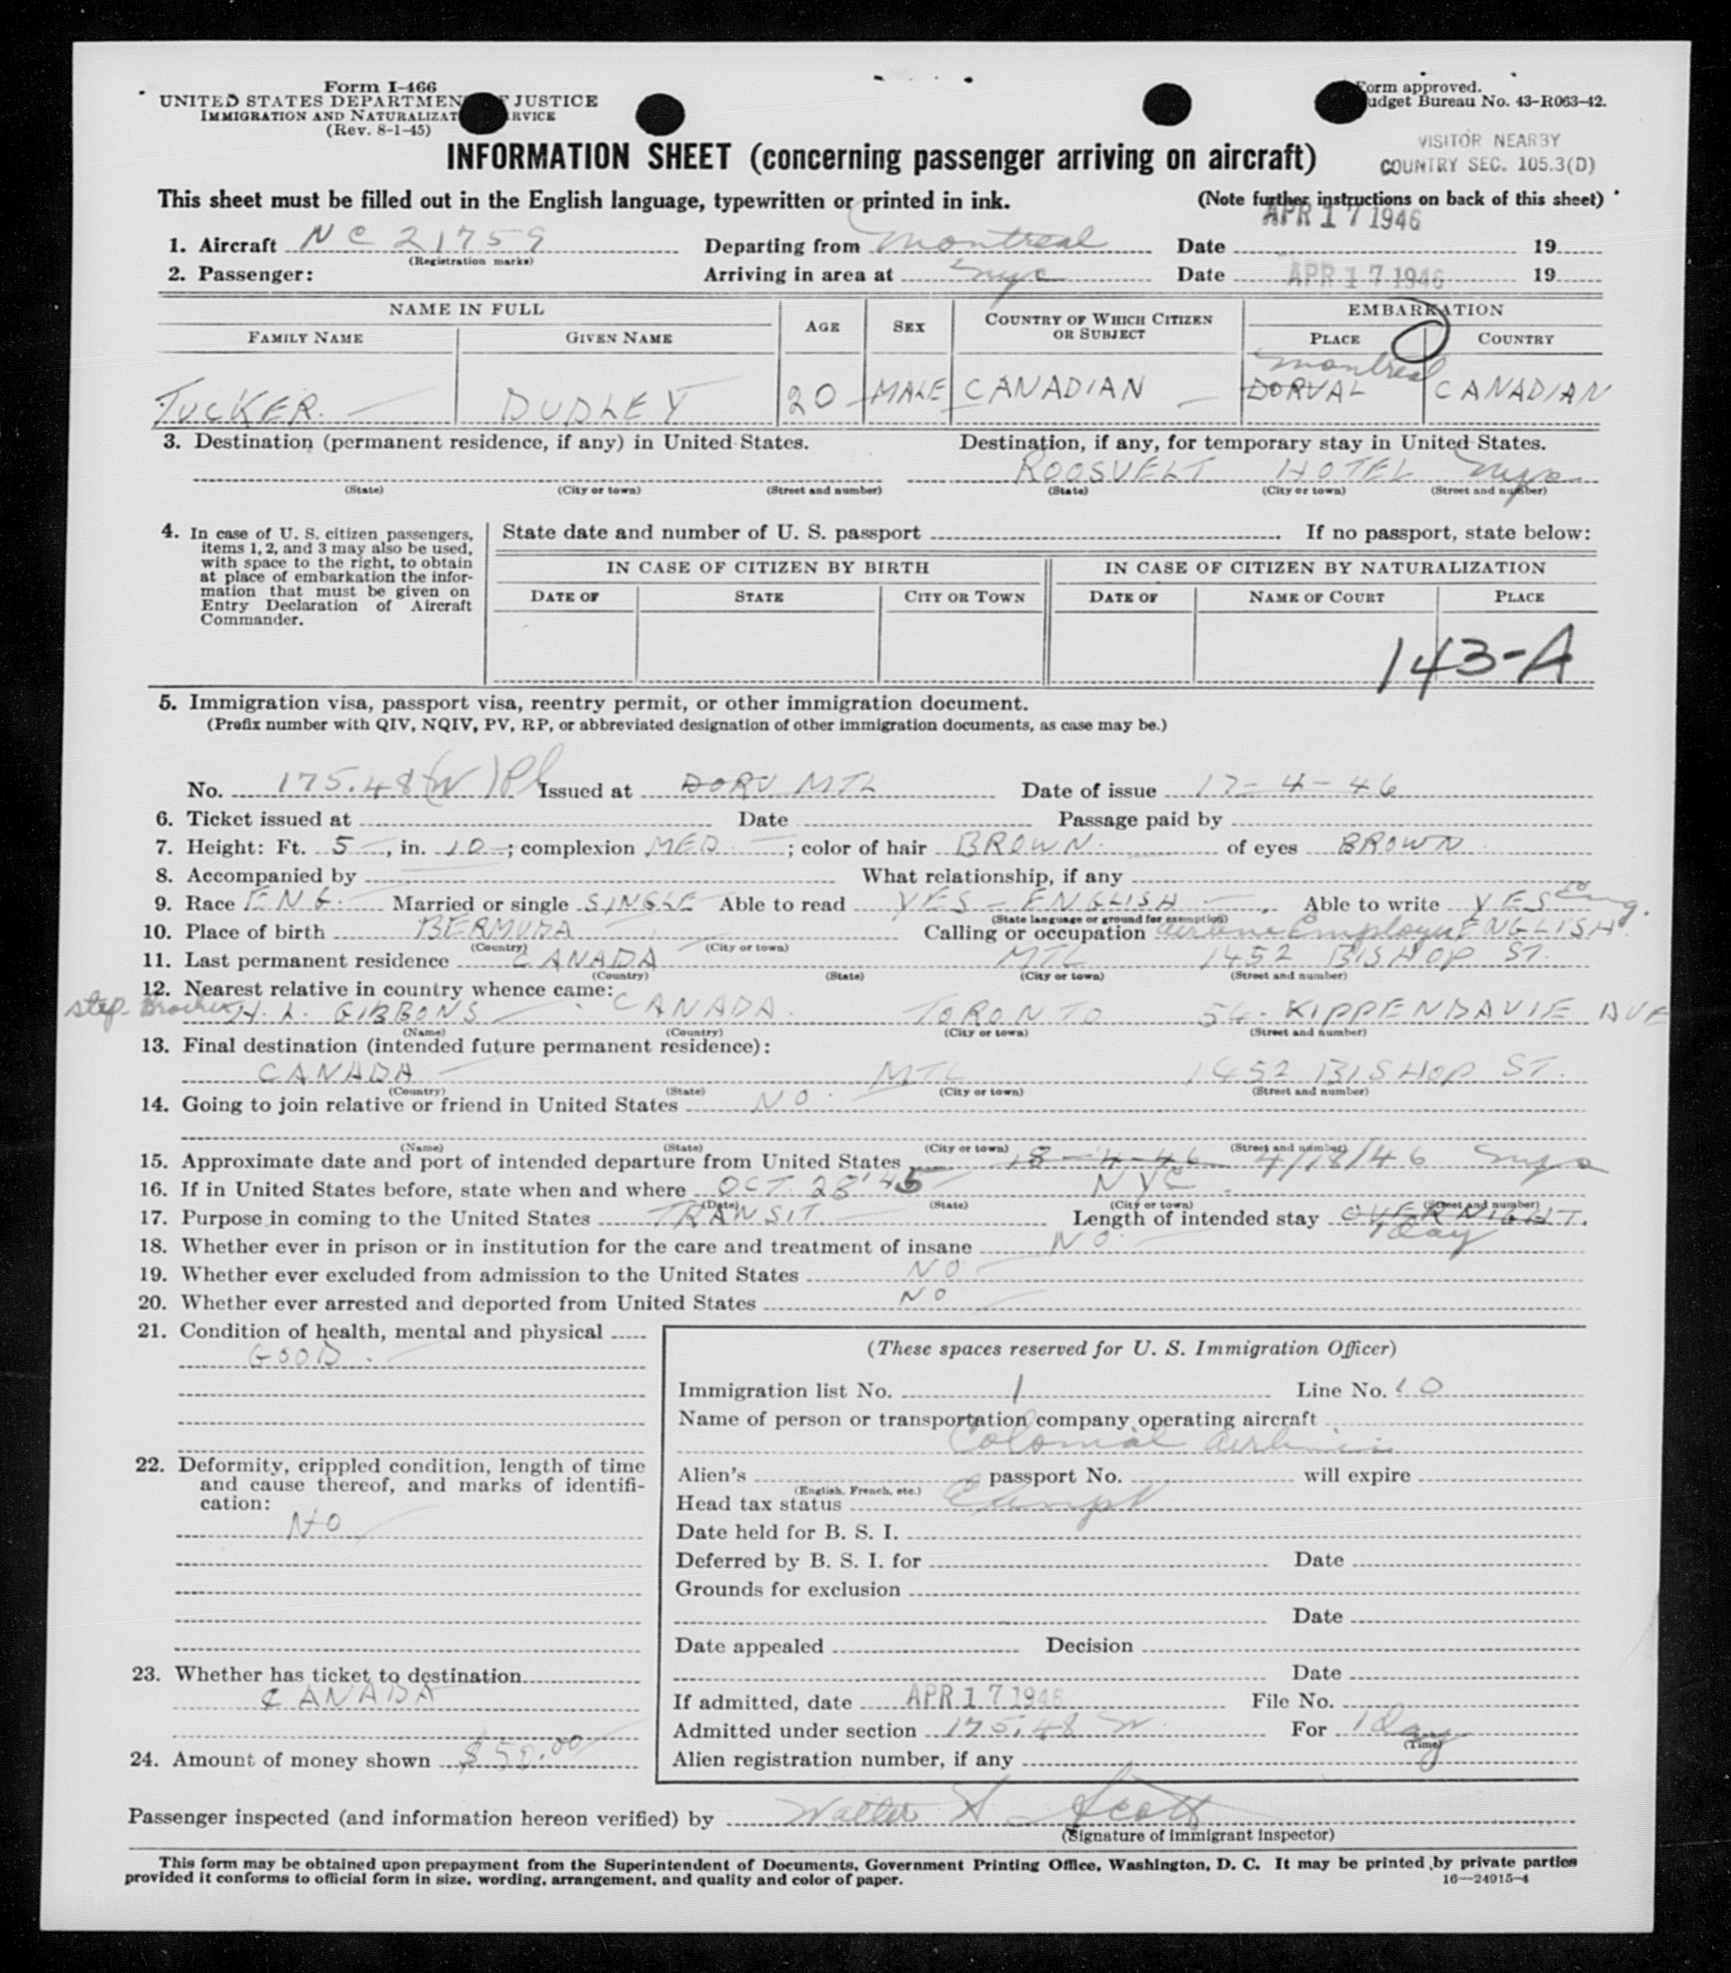 Form I-466
UNITED STATES DEPARTMENT JUSTICE
IMMIGRATION AND NATURALIZAT RVICE
(Rev. 8-1-45)
Form approved.
udget Bureau No. 43-R063-42.
VISITOR NEARBY
COUNTRY SEC. 105.3(D)
INFORMATION SHEET (concerning passenger arriving on aircraft)
This sheet must be filled out in the English language, typewritten or printed in ink. (Note further instructions on back of this sheet)
APR 17 1946
1. Aircraft NC 21759 Departing from Montreal Date 19
(Registration marks)
2. Passenger: Arriving in area at nyc Date APR 17 1946 19
NAME IN FULL AGE SEX COUNTRY OF WHICH CITIZEN OR SUBJECT EMBARKATION
FAMILY NAME GIVEN NAME PLACE COUNTRY
Montreal
TUCKER DUDLEY 20 MALE CANADIAN DORVAL CANADIAN
3. Destination (permanent residence, if any) in United States. Destination, if any, for temporary stay in United States.
ROOSVELT HOTEL nyc
(State) (City or town) (Street and number) (State) (City or town) (Street and number)
4. In case of U. S. citizen passengers, items 1, 2, and 3 may also be used, with space to the right, to obtain at place of embarkation the information that must be given on Entry Declaration of Aircraft Commander.
State date and number of U. S. passport If no passport, state below:
IN CASE OF CITIZEN BY BIRTH IN CASE OF CITIZEN BY NATURALIZATION
DATE OF STATE CITY OR TOWN DATE OF NAME OF COURT PLACE
143-A
5. Immigration visa, passport visa, reentry permit, or other immigration document.
(Prefix number with QIV, NQIV, PV, RP, or abbreviated designation of other immigration documents, as case may be.)
No. 175.48 (W) Issued at DORV MTL Date of issue 17-4-46
6. Ticket issued at Date Passage paid by
7. Height: Ft. 5, in. 10; complexion MED; color of hair BROWN of eyes BROWN
8. Accompanied by What relationship, if any
9. Race ENG. Married or single SINGLE Able to read YES - ENGLISH Able to write YES Eng.
(State language or ground for exemption)
10. Place of birth BERMUDA Calling or occupation airline Employee ENGLISH
(Country) (City or town)
11. Last permanent residence CANADA MTL 1452 BISHOP ST.
(Country) (State) (City or town) (Street and number)
12. Nearest relative in country whence came:
step Brother H. L. GIBBONS CANADA. TORONTO 54 KIPPENDAVIE AVE
(Name) (Country) (City or town) (Street and number)
13. Final destination (intended future permanent residence):
CANADA MTL 1452 BISHOP ST.
(Country) (State) (City or town) (Street and number)
14. Going to join relative or friend in United States NO.
(Name) (State) (City or town) (Street and number)
15. Approximate date and port of intended departure from United States 18-4-46 4/18/46 nyc
16. If in United States before, state when and where OCT. 28 '45 NYC
(Date) (State) (City or town) (Street and number)
17. Purpose in coming to the United States TRANSIT Length of intended stay OVERNIGHT.
1 Day
18. Whether ever in prison or in institution for the care and treatment of insane NO
19. Whether ever excluded from admission to the United States NO
20. Whether ever arrested and deported from United States NO
21. Condition of health, mental and physical
GOOD.
22. Deformity, crippled condition, length of time and cause thereof, and marks of identification:
NO
23. Whether has ticket to destination
CANADA
24. Amount of money shown $50.00
(These spaces reserved for U. S. Immigration Officer)
Immigration list No. 1 Line No. 10
Name of person or transportation company operating aircraft
Colonial Airlines
Alien's passport No. will expire
(English, French, etc.)
Head tax status Exempt
Date held for B. S. I.
Deferred by B. S. I. for Date
Grounds for exclusion
Date
Date appealed Decision
Date
If admitted, date APR 17 1946 File No.
Admitted under section 175.48 W For 1 Day
(Time)
Alien registration number, if any
Passenger inspected (and information hereon verified) by Walter A Scott
(Signature of immigrant inspector)
This form may be obtained upon prepayment from the Superintendent of Documents, Government Printing Office, Washington, D. C. It may be printed by private parties
provided it conforms to official form in size, wording, arrangement, and quality and color of paper.
16—24015-4